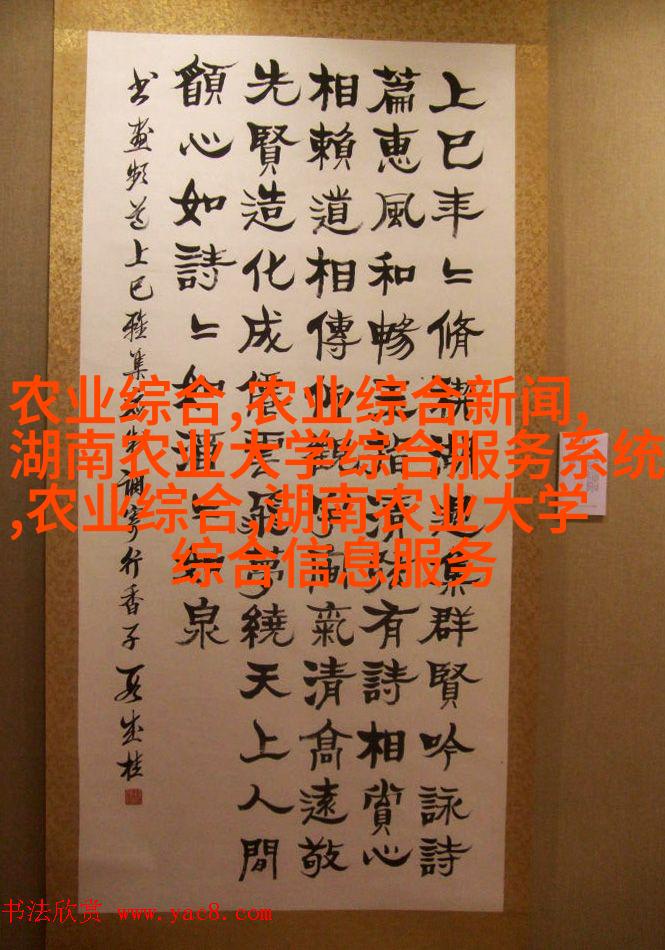 上巳年〻脩湖邊集群賢吟詠詩
篇惠風和暢流有詩相賞心
相賴道相傳氣清高遠敬
先賢造化成雲飛夢繞天上人間
願心如詩〻如酒〻如泉
书畫頻道上巳雅集調寄行香子
农业综合,农业综合新闻,
湖南农业大学综合服务系统
,农业综合,湖南农业大学
综合信息服务
书法欣赏 www.yac8.com